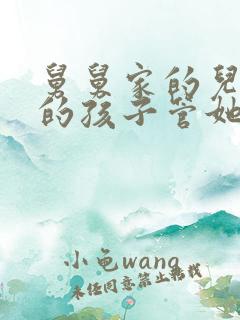 舅舅家的兒
的孩子管她
小龟wang
未经同意禁止转载